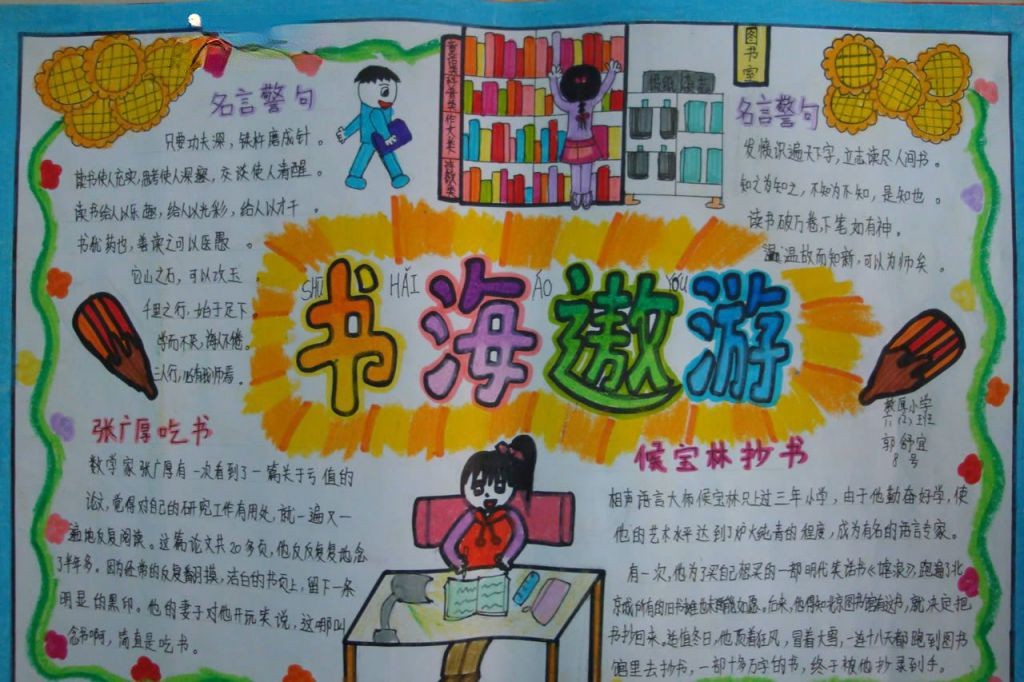 名言警句
只要功夫深，铁杵磨成针。
读书使人充实，思考使人深邃，交谈使人清醒。
读书给人以乐趣，给人以光彩，给人以才干。
书犹药也，善读之可以医愚。
它山之石，可以攻玉
千里之行，始于足下
学而不厌，诲人不倦。
三人行，必有我师焉。
童话类
科普类
作文类
读数类
报纸杂志
图书室
名言警句
发愤识遍天下字，立志读尽人间书。
知之为知之，不知为不知，是知也。
读书破万卷，下笔如有神。
温故而知新，可以为师矣。
SHŪ HǍI ÁO YÓU
书海遨游
教厚小学
六（2）班
郭舒宜
8号
张广厚吃书
数学家张广厚有一次看到了一篇关于亏值的
论文，觉得对自己的研究工作有用处，就一遍又一
遍地反复阅读。这篇论文共20多页，他反反复复地念
了半年多。因为经常的反复翻摸，洁白的书页上，留下一条
明显的黑印。他的妻子对他开玩笑说，这哪叫
念书啊，简直是吃书。
候宝林抄书
相声语言大师候宝林只上过三年小学，由于他勤奋好学，使
他的艺术水平达到了炉火纯青的程度，成为有名的语言专家。
有一次，他为了买自己想买的一部明代笑话书《谑浪》，跑遍了北
京城所有的旧书摊也未能如愿。后来，他得知北京图书馆有这书，就决定把
书抄回来。适值冬日，他顶着狂风，冒着大雪，一连十八天都跑到图书
馆里去抄书，一部十多万字的书，终于被他抄录到手。